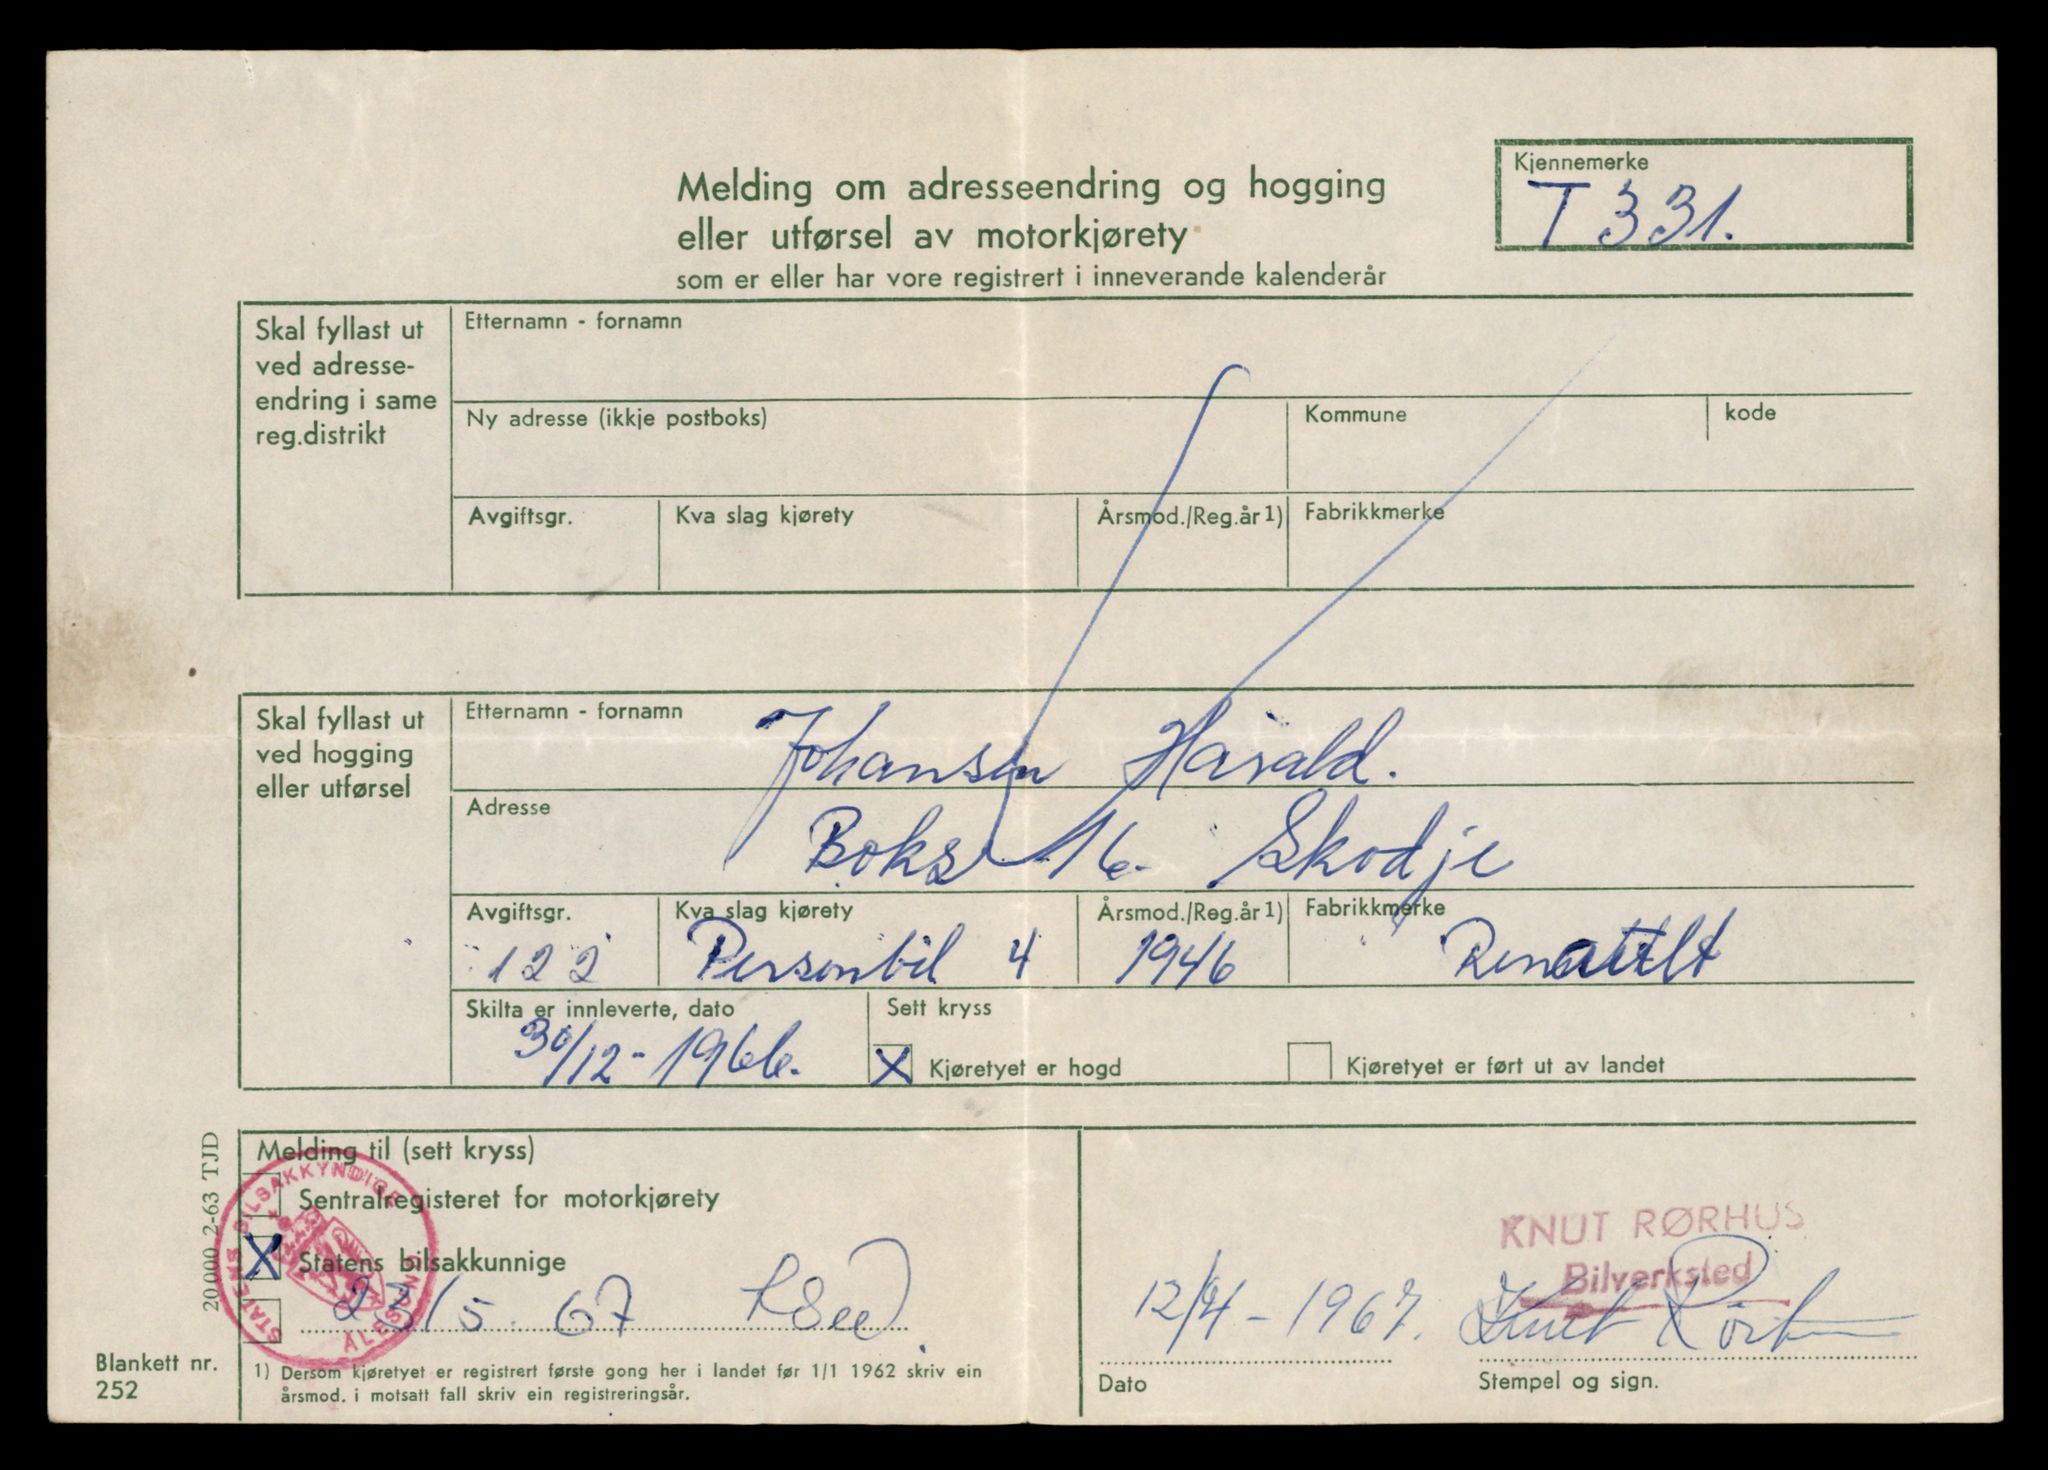 Melding om adresseendring og hogging
eller utførsel av motorkjørety
som er eller har vore registrert i inneverande kalenderår
Kjennemerke
T 331.
Skal fyllast ut
ved adresse-
endring i same
reg.distrikt
Etternamn - fornamn
Ny adresse (ikkje postboks)
Kommune
kode
Avgiftsgr.
Kva slag kjørety
Årsmod./Reg.år1)
Fabrikkmerke
Skal fyllast ut
ved hogging
eller utførsel
Etternamn - fornamn
Johansen Harald.
Adresse
Boks 16. Skodje
Avgiftsgr.
122
Kva slag kjørety
Personbil 4
Årsmod./Reg.år1)
1946
Fabrikkmerke
Skilta er innleverte, dato
30/12-1966.
Sett kryss
X Kjøretyet er hogd
Kjøretyet er ført ut av landet
20000 2-63 TJD
Melding til (sett kryss)
Sentralregisteret for motorkjørety
X Statens bilsakkunnige
23/5. 67
STATENS BILSAKKYNDIGE
ÅLESUND
1) Dersom kjøretyet er registrert første gong her i landet før 1/1 1962 skriv ein
årsmod. i motsatt fall skriv ein registreringsår.
Blankett nr.
252
12/4-1967.
Dato
KNUT RØRHUS
Bilverksted
Knut
Stempel og sign.